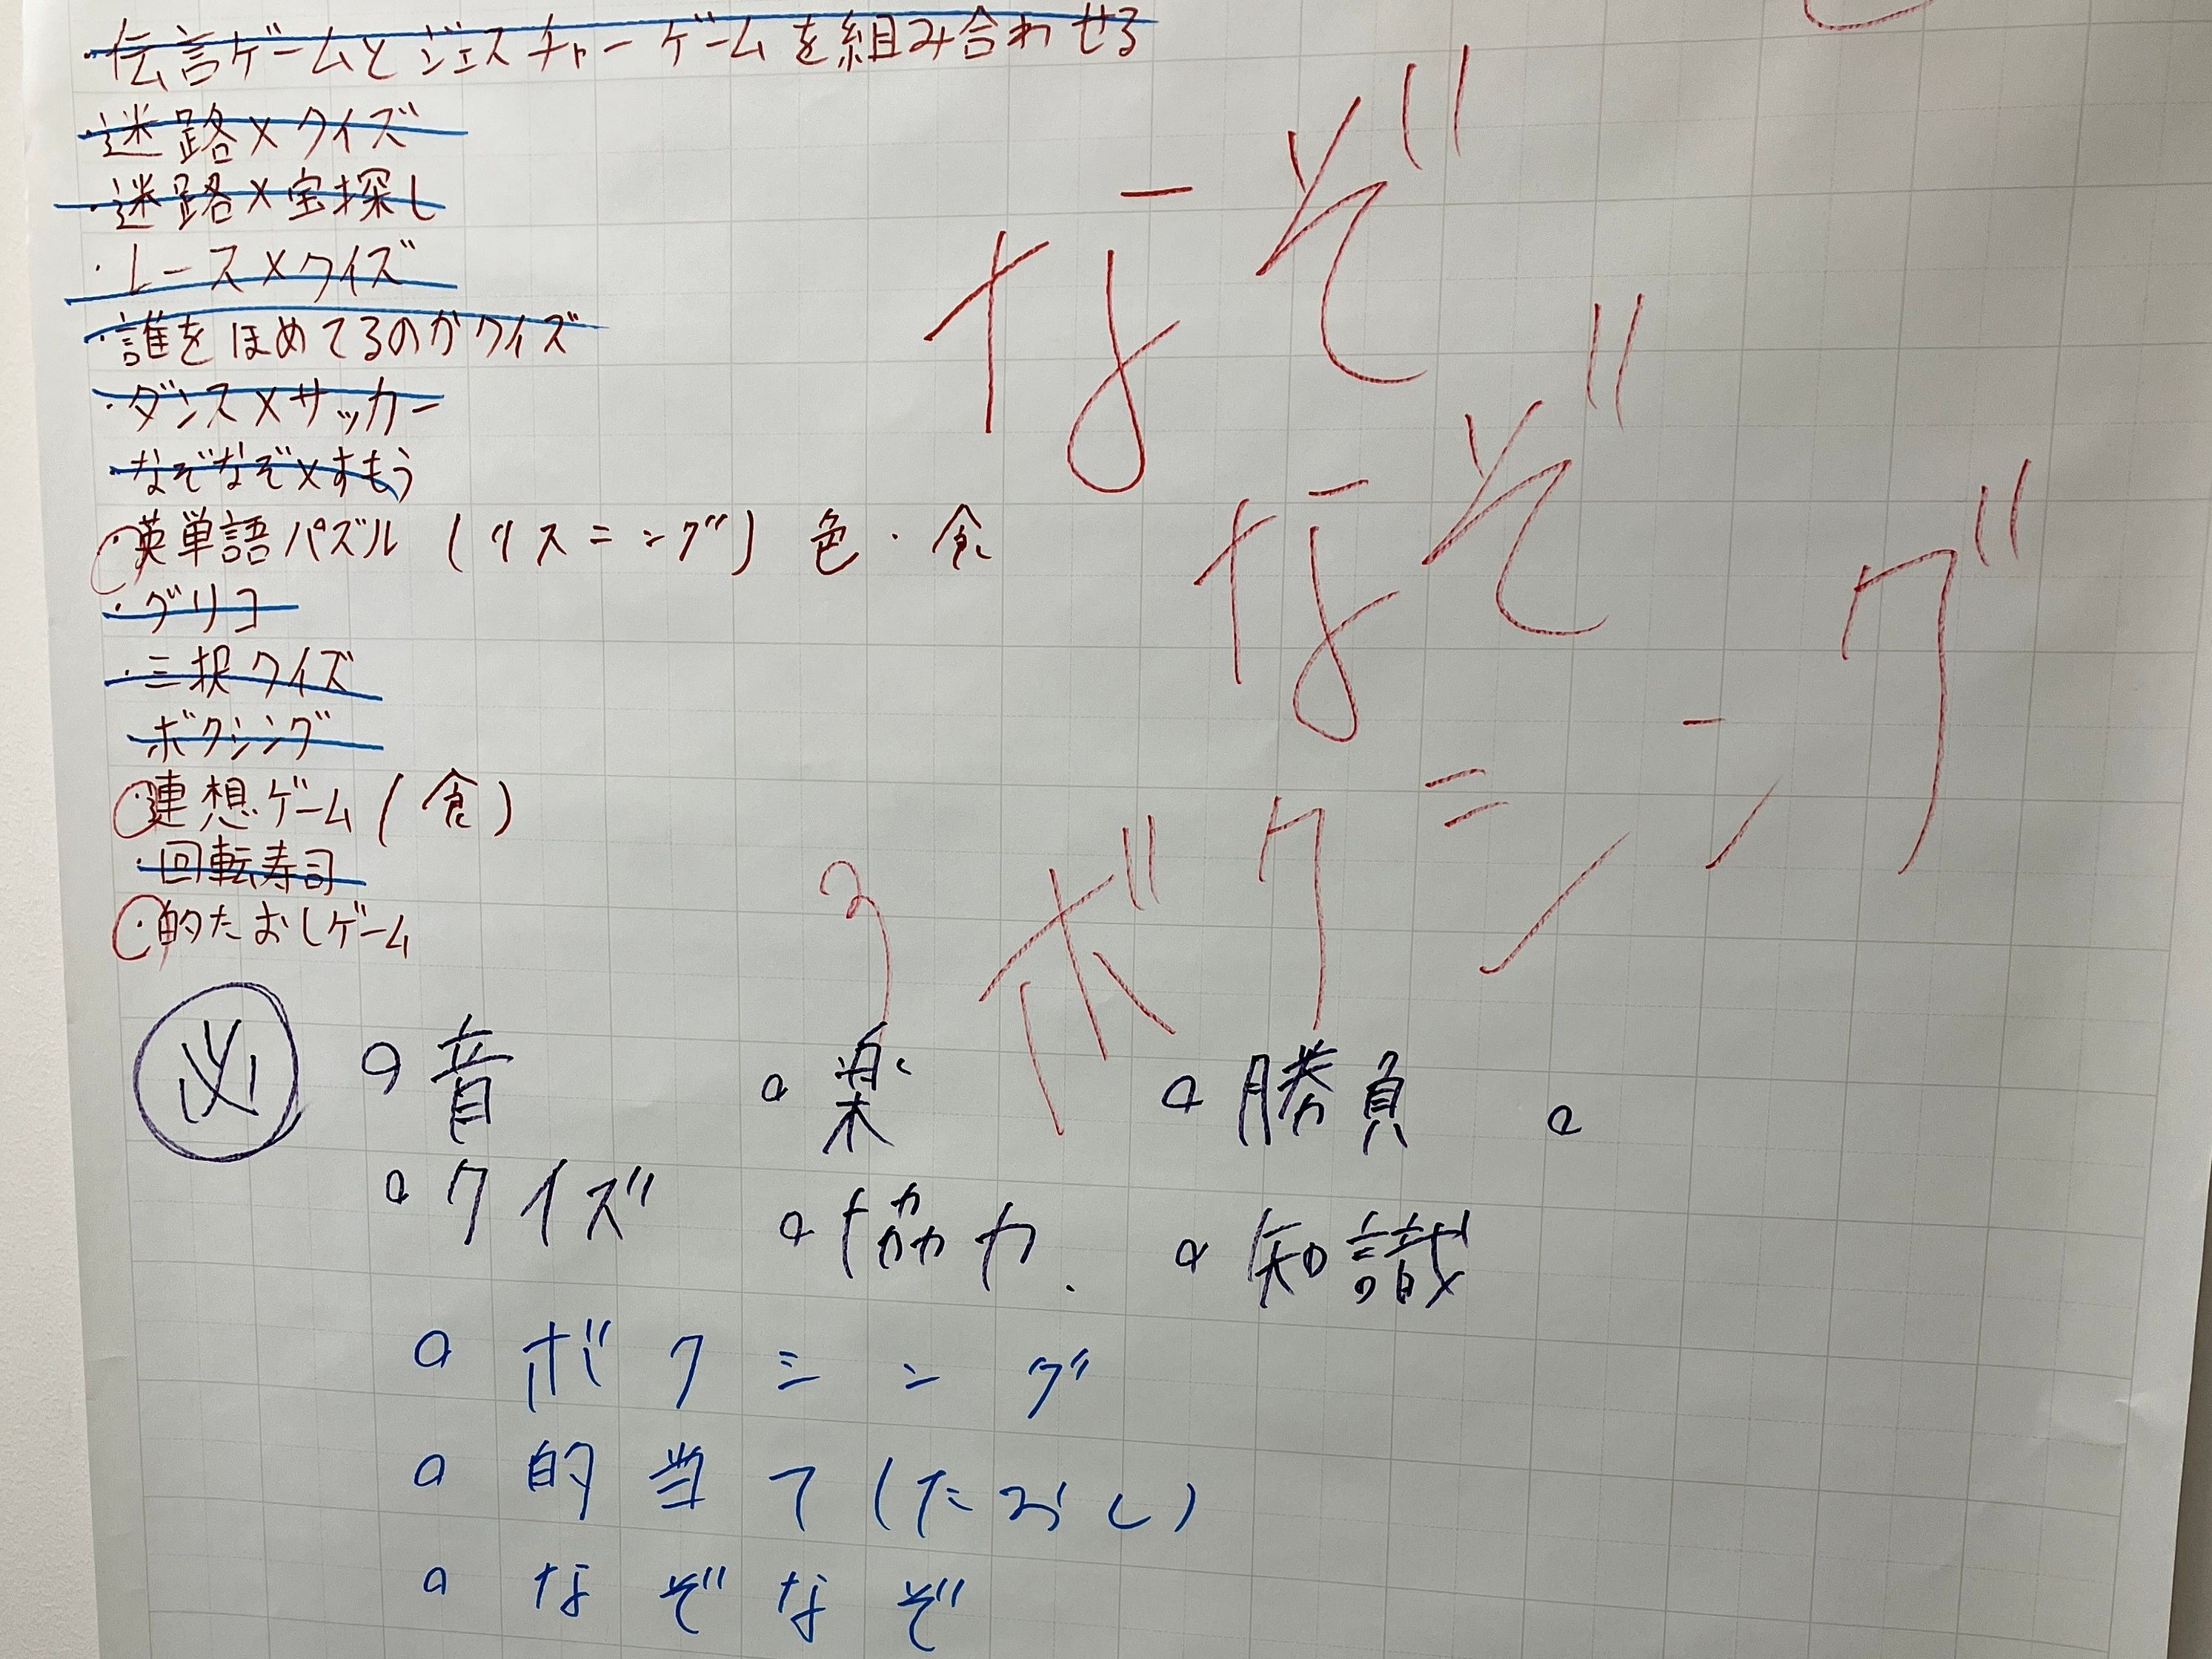 ・伝言ゲームとジェスチャーゲームを組み合わせる
・迷路×クイズ
・迷路×宝探し
・レース×クイズ
・誰をほめてるのかクイズ
・ダンス×サッカー
・なぞなぞ×すもう
・英単語パズル(リスニング)色・食
・グリコ
・三択クイズ
ボクシング
・連想ゲーム(食)
・回転寿司
・的たおしゲーム
なぞ
なぞ
ボクシング
必 ○音 ○楽 ○勝負 ○
○クイズ ○協力. ○知識
○ボクシング
○的当て(たおし)
○なぞなぞ